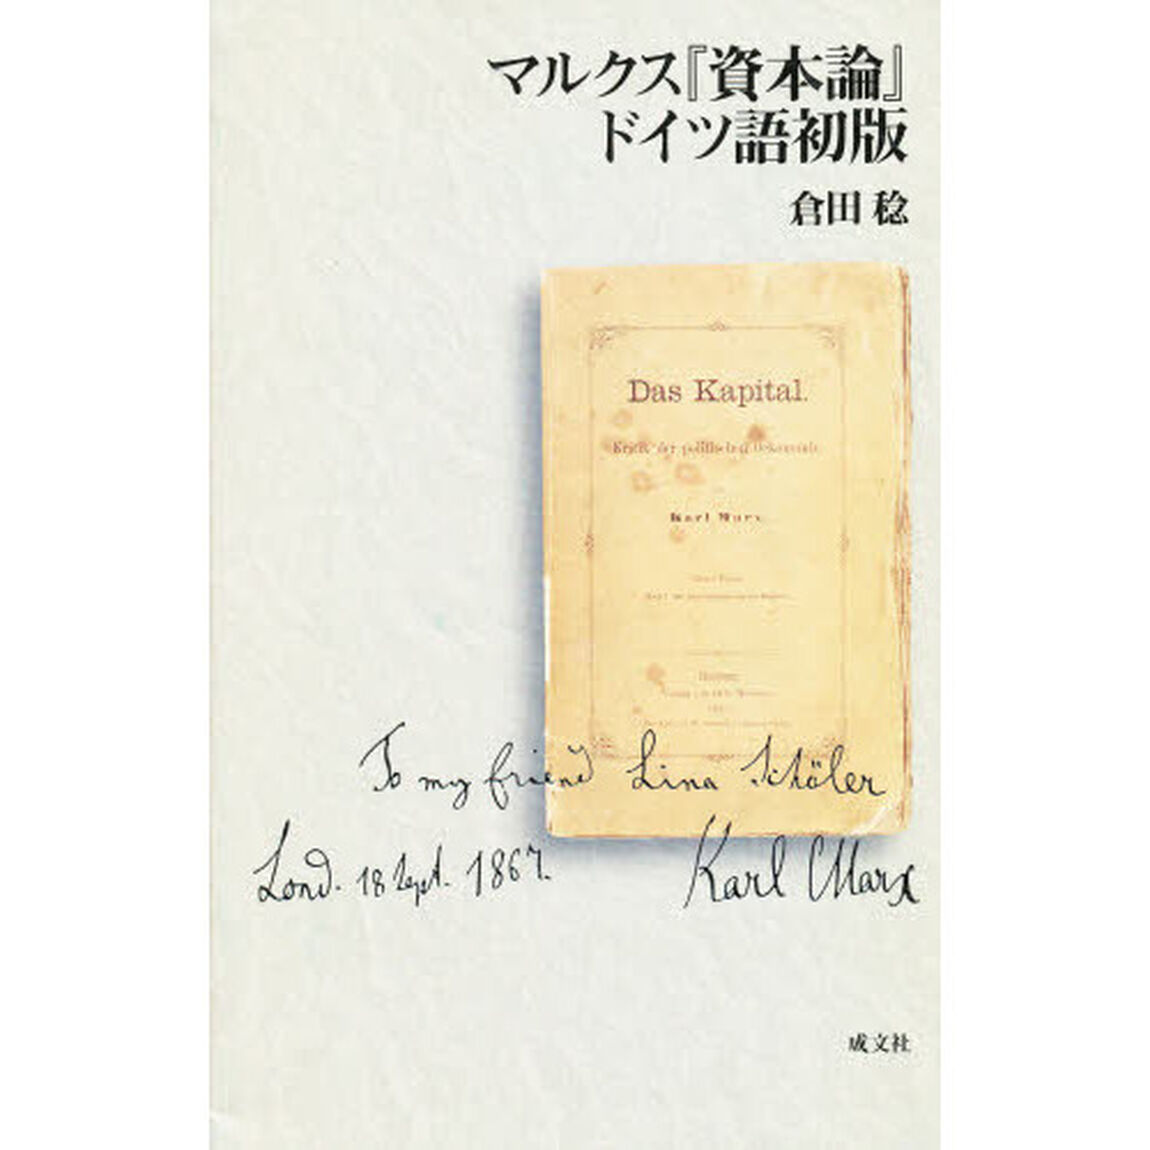 マルクス『資本論』
ドイツ語初版
倉田 稔
Das Kapital.
Kritik der politischen Oekonomie.
Karl Marx.
To my friend Lina Schöler
Lond. 18 Sept. 1867.
Karl Marx
成文社